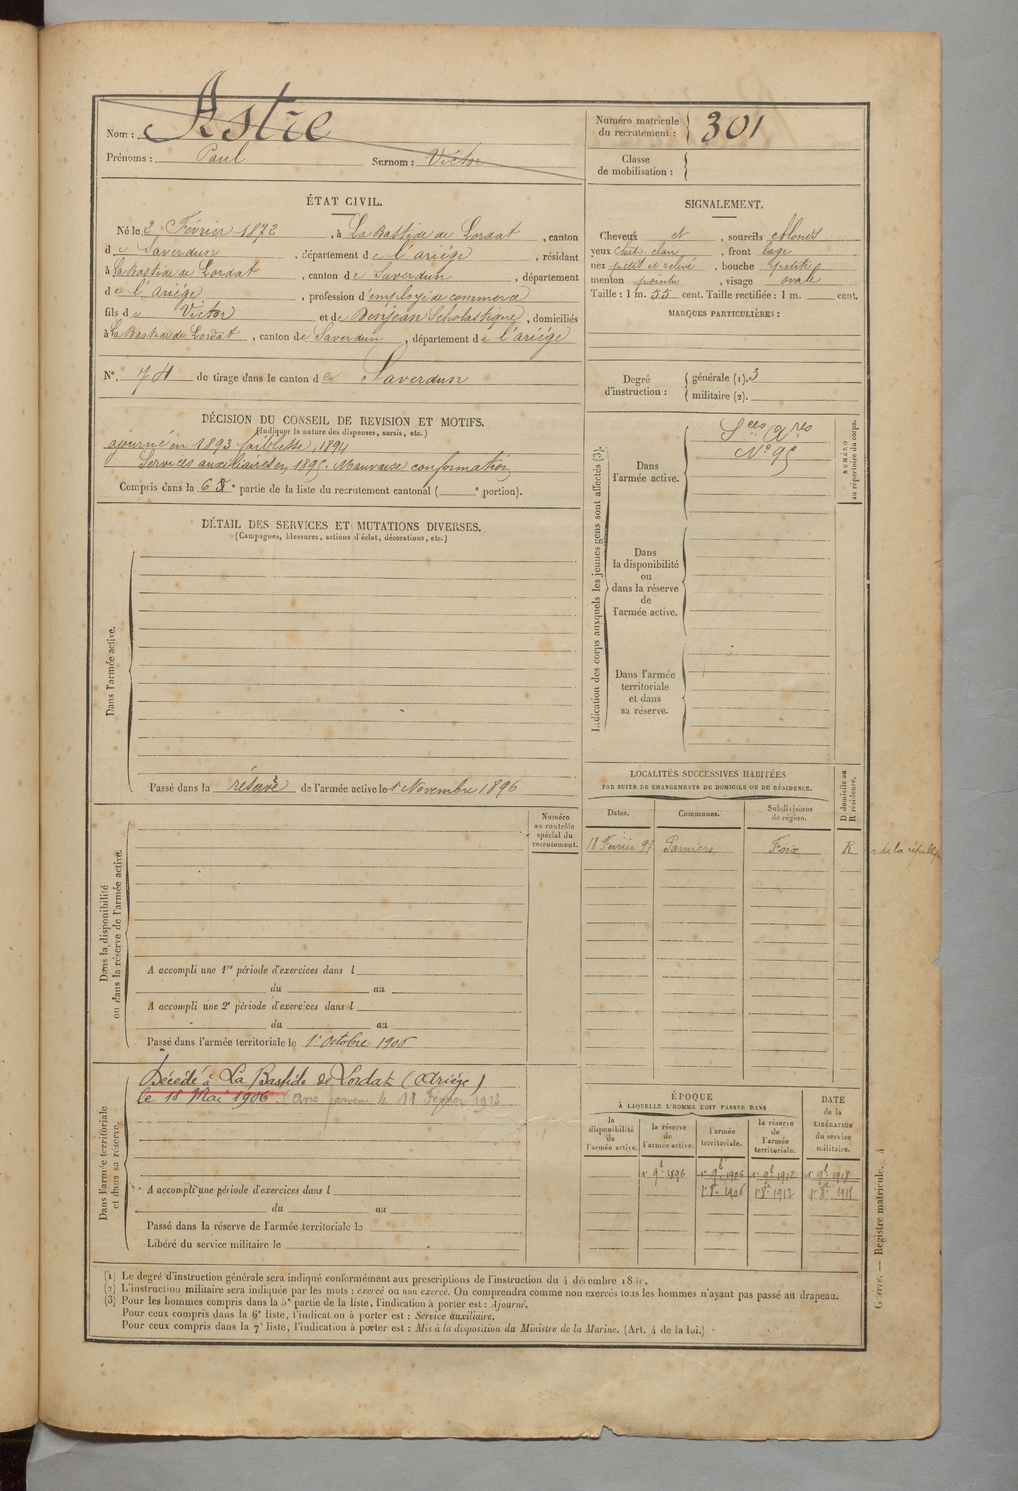 Nom : Astre
Prénoms : Paul Surnom : Victor
Numéro matricule du recrutement : 301
Classe de mobilisation :
ÉTAT CIVIL.
Né le 2 Février 1872, à La Bastide de Lordat, canton
de Saverdun, département de l'ariége, résidant
à La Bastide de Lordat, canton de Saverdun, département
de l'Ariége, profession d'employé de commerce
fils de Victor et de Benjean Scholastique, domiciliés
à La Bastide de Lordat, canton de Saverdun, département de l'ariége
N°. 74 de tirage dans le canton de Saverdun
SIGNALEMENT.
Cheveux et, sourcils blonds
yeux chat. clair, front large
nez petit et relevé, bouche petite
menton pointu, visage ovale
Taille : 1 m. 55 cent. Taille rectifiée : 1 m. cent.
MARQUES PARTICULIÈRES :
Degré d'instruction : générale (1). 3
militaire (2).
DÉCISION DU CONSEIL DE REVISION ET MOTIFS.
(Indiquer la nature des dispenses, sursis, etc.)
ajourné en 1893 faiblesse, 1894
Services auxiliaires en 1895. Mauvaise conformation
Compris dans la 6e partie de la liste du recrutement cantonal ( e portion).
DÉTAIL DES SERVICES ET MUTATIONS DIVERSES.
(Campagnes, blessures, actions d'éclat, décorations, etc.)
Dans l'armée active.
Passé dans la réserve de l'armée active le 1 Novembre 1896
Indication des corps auxquels les jeunes gens sont affectés (3).
NUMÉRO au répertoire du corps.
Dans l'armée active.
Sces Xres
N° 95
Dans la disponibilité ou dans la réserve de l'armée active.
Dans l'armée territoriale et dans sa réserve.
LOCALITÉS SUCCESSIVES HABITÉES
PAR SUITE DE CHANGEMENTS DE DOMICILE OU DE RÉSIDENCE.
D domicile ou R résidence.
Dates. Communes. Subdivisions de région.
18 Février 98 Pamiers Foix R r. de la république
Dans la disponibilité ou dans la réserve de l'armée active.
Numéro au contrôle spécial du recrutement.
A accompli une 1re période d'exercices dans l
du au
A accompli une 2e période d'exercices dans l
du au
Passé dans l'armée territoriale le 1er Octobre 1906
Dans l'armée territoriale et dans sa réserve.
Décédé à La Bastide de Lordat (Ariége)
le 18 Mai 1906. (avis parvenu le 18 Février 1913
A accompli une période d'exercices dans l
du au
Passé dans la réserve de l'armée territoriale le
Libéré du service militaire le
ÉPOQUE
À LAQUELLE L'HOMME DOIT PASSER DANS
DATE de la LIBÉRATION du service militaire.
la disponibilité de l'armée active. la réserve de l'armée active. l'armée territoriale. la réserve de l'armée territoriale.
1r 9b 1896 1r 9b 1906 1r 9b 1912 1r 9b 1918
1r 8e 1906 1r 8e 1912 1r 8e 1918
(1) Le degré d'instruction générale sera indiqué conformément aux prescriptions de l'instruction du 4 décembre
(2) L'instruction militaire sera indiquée par les mots : exercé ou non exercé. On comprendra comme non exercés tous les hommes n'ayant pas passé au drapeau.
(3) Pour les hommes compris dans la 5e partie de la liste, l'indication à porter est : Ajourné.
Pour ceux compris dans la 6e liste, l'indication à porter est : Service auxiliaire.
Pour ceux compris dans la 7e liste, l'indication à porter est : Mis à la disposition du Ministre de la Marine. (Art. 4 de la loi.)
Guerre. — Registre matricule. 4